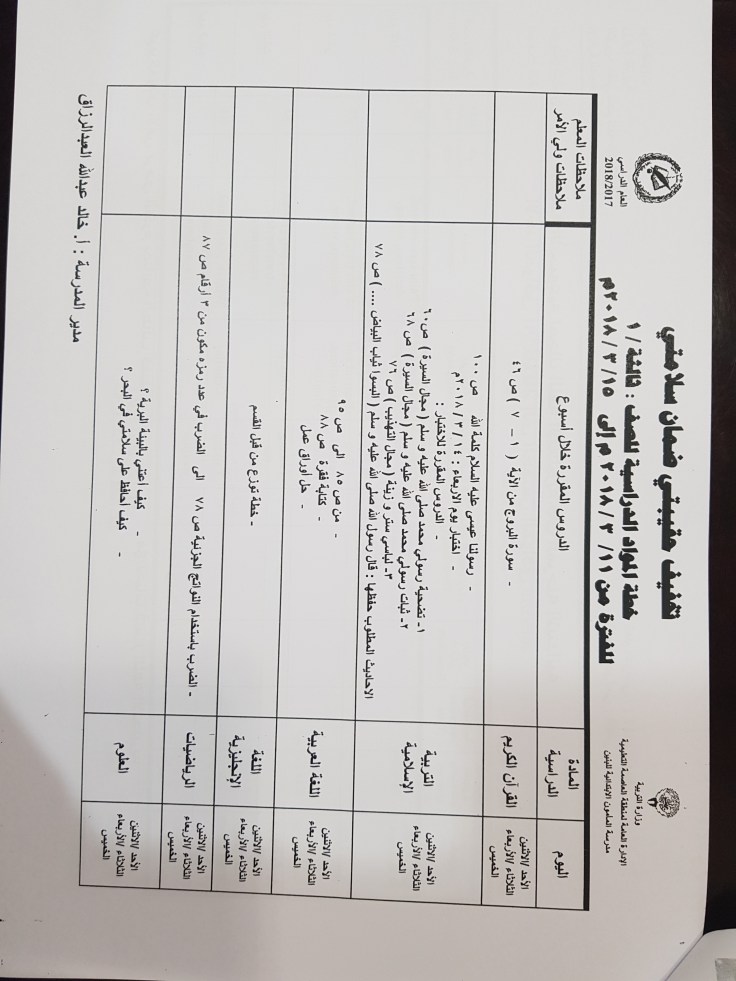 وزارة التربية
الإدارة العامة لمنطقة العاصمة التعليمية
مدرسة المأمون الابتدائية للبنين
العام الدراسي
2018/2017
تخفيف حقيبتي ضمان سلامتي
خطة المواد الدراسية للصف : ثالثة / ١
للفترة من ١١/ ٣ / ٢٠١٨ م إلى ١٥ / ٣ / ٢٠١٨م
اليوم
المادة الدراسية
الدروس المقررة خلال أسبوع
ملاحظات المعلم
ملاحظات ولي الأمر
الأحد /الاثنين
الثلاثاء /الأربعاء
الخميس
القرآن الكريم
- سورة البروج من الآية ( ١ – ٧ ) ص ٤٦
الأحد /الاثنين
الثلاثاء /الأربعاء
الخميس
التربية
الإسلامية
- رسولنا عيسى عليه السلام كلمة الله ص ١٠٠
- اختبار يوم الاربعاء : ١٤ / ٣ / ٢٠١٨م
- الدروس المقررة للاختبار :
١- تضحية رسولي محمد صلى الله عليه و سلم ( مجال السيرة ) ص ٦٠
٢- ثبات رسولي محمد صلى الله عليه و سلم ( مجال السيرة ) ص ٦٨
٣- لباسي ستر و زينة ( مجال التهذيب ) ص ٧٦
الاحاديث المطلوب حفظها : قال رسول الله صلى الله عليه و سلم ( البسوا ثياب البياض .... ) ص ٧٨
الأحد /الاثنين
الثلاثاء /الأربعاء
الخميس
اللغة العربية
- من ص ٨٥ الى ص ٩٥
- كتابة فقرة ص ٨٨
- حل أوراق عمل
الأحد /الاثنين
الثلاثاء /الأربعاء
الخميس
اللغة
الإنجليزية
- خطة توزع من قبل القسم
الأحد /الاثنين
الثلاثاء /الأربعاء
الخميس
الرياضيات
- الضرب باستخدام النواتج الجزئية ص ٧٨ الى الضرب في عدد رمزه مكون من ٣ أرقام ص ٨٧
الأحد /الاثنين
الثلاثاء /الأربعاء
الخميس
العلوم
- كيف أعتني بالبيئة البرية ؟
- كيف أحافظ على سلامتي في البحر ؟
مدير المدرسة : أ. خالد عبدالله العبدالرزاق